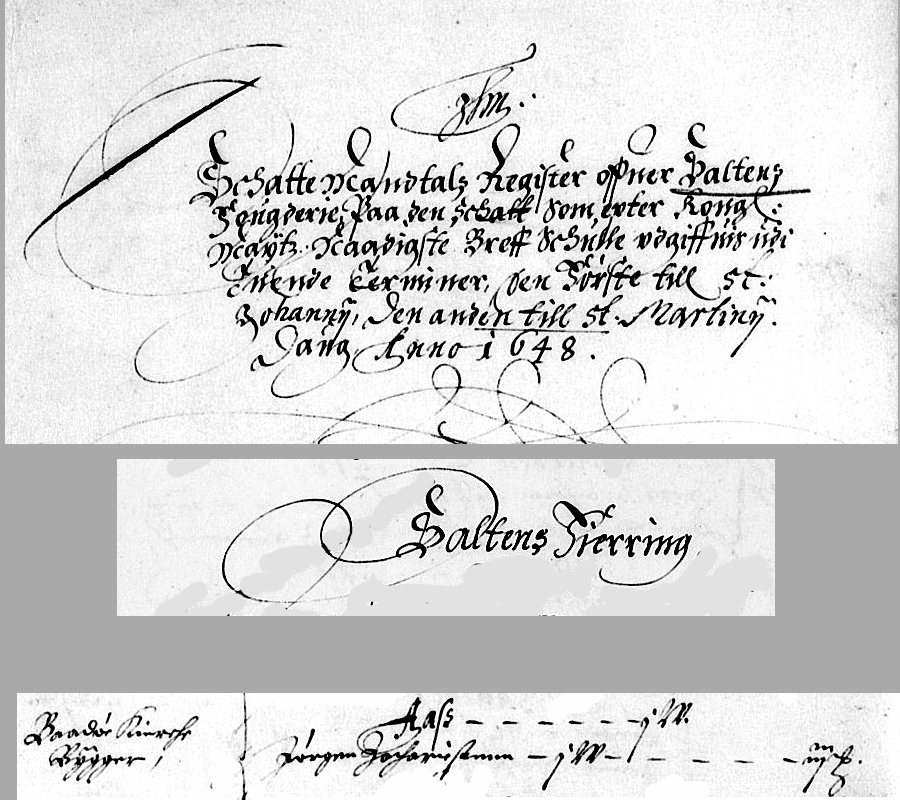 Schatte Mandtals Register offuer Saltens
Fougderie, Paa den Schatt Som epter Kongl:
Maÿtz: Naadigste Breff Schulle vdgiffuis udi
Tuende Terminer, den Förste till St:
Johannÿ, den anden till St: Martinÿ
Daug Anno 1648.
Saltens Fierring
Aass
Baadöe Kierche
Bÿgger
Jörgen